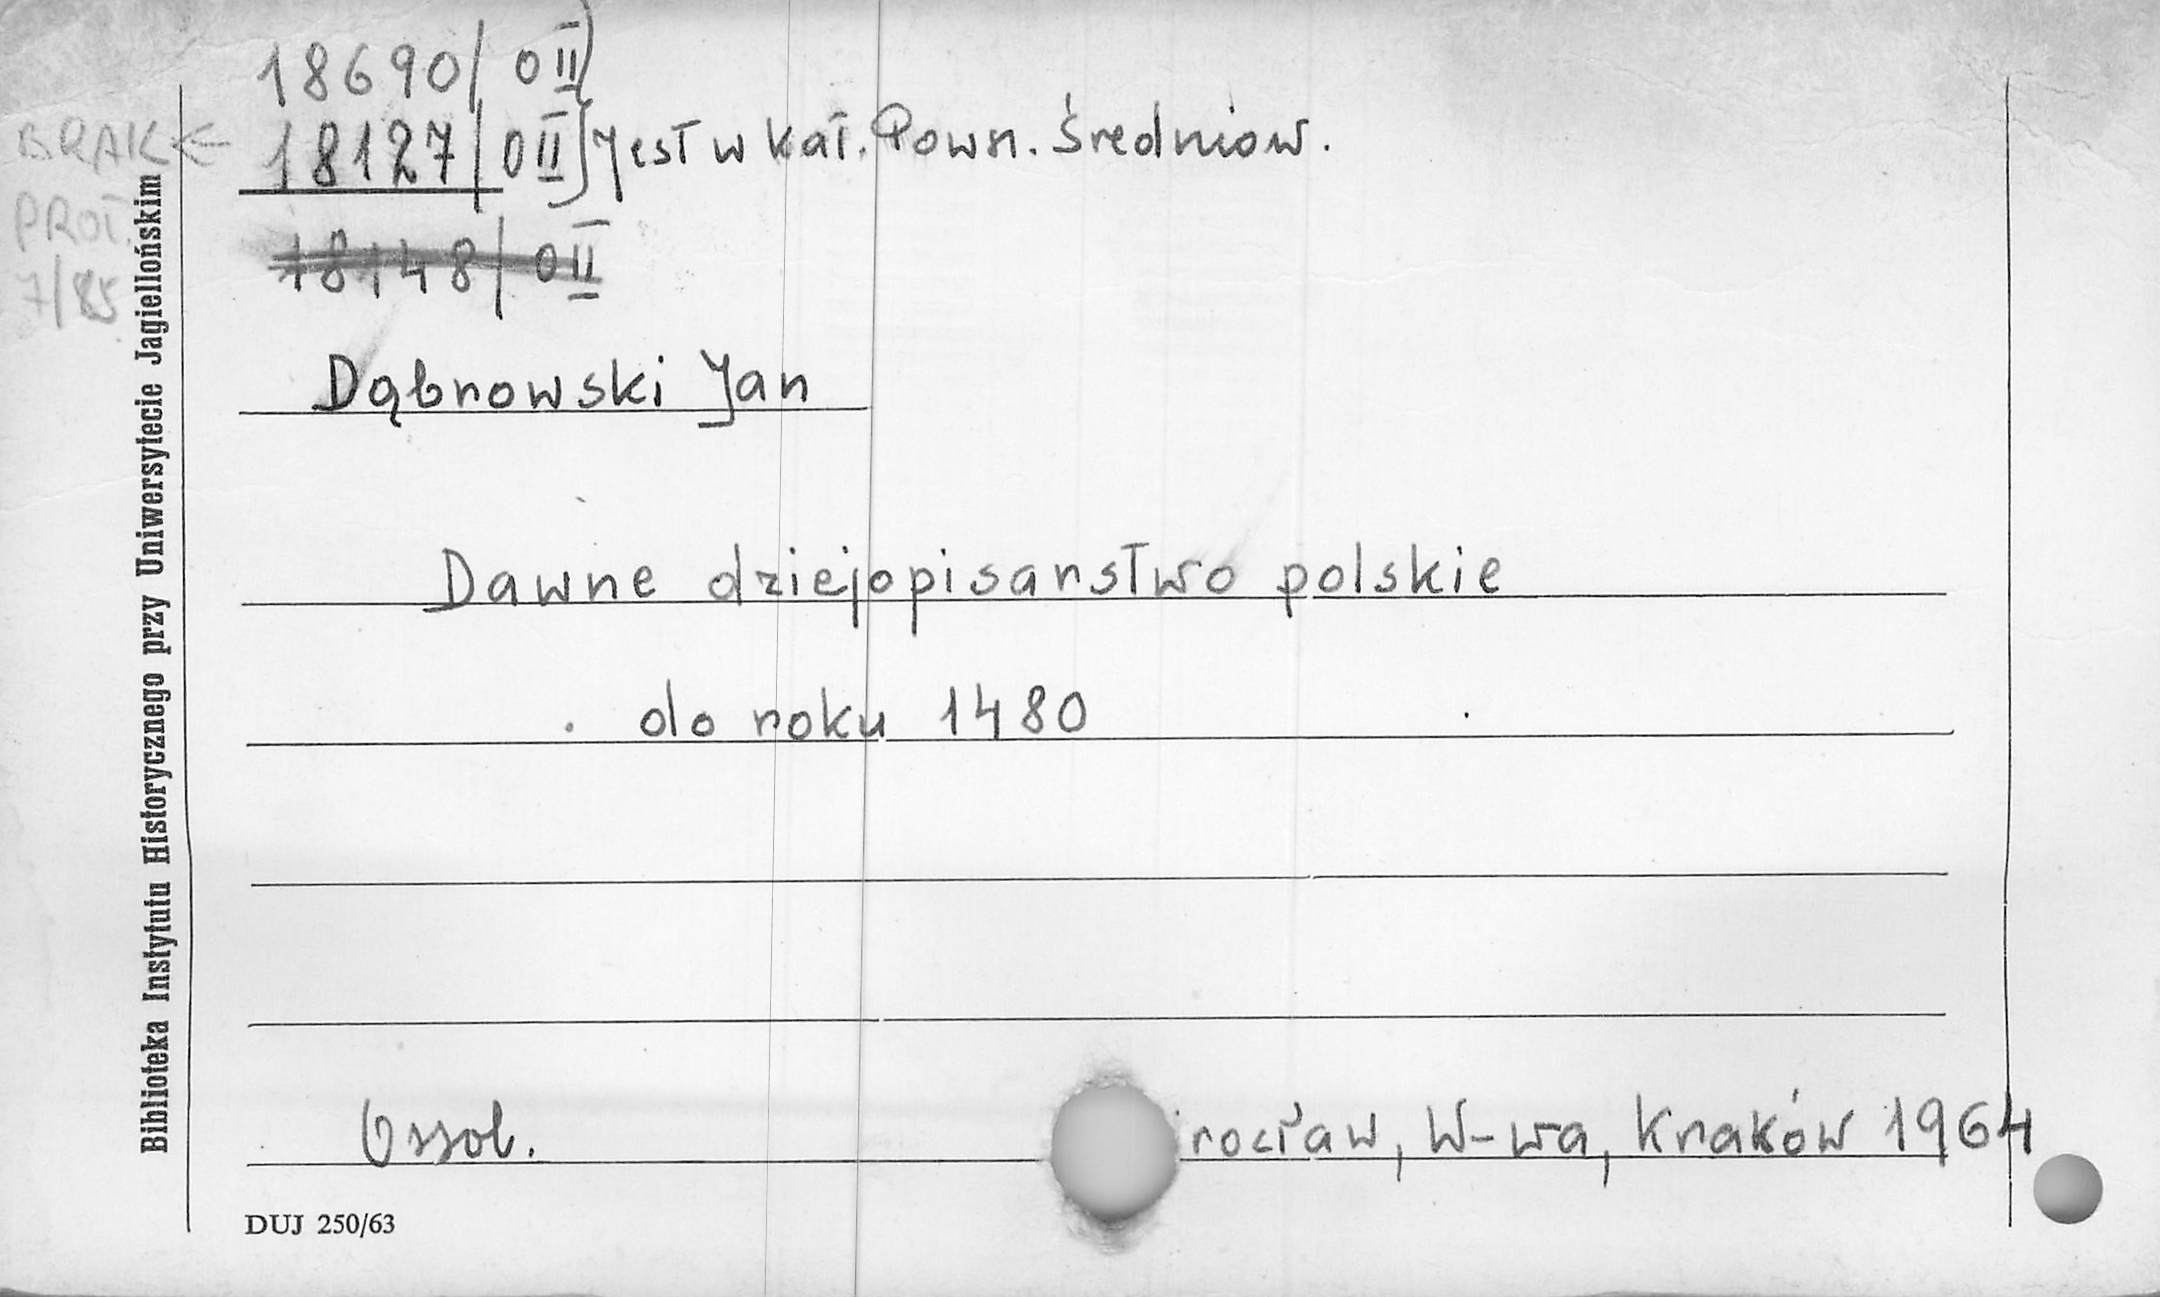 18690/OII
BRAK ← 18127/OII Jest w kat. Pown. Średniow.
PROT.
7/85
18148/OII
Dąbrowski Jan
Dawne dziejopisarstwo polskie
do roku 1480
Ossol. rocław, W-wa, Kraków 1964
DUJ 250/63
Biblioteka Instytutu Historycznego przy Uniwersytecie Jagiellońskim